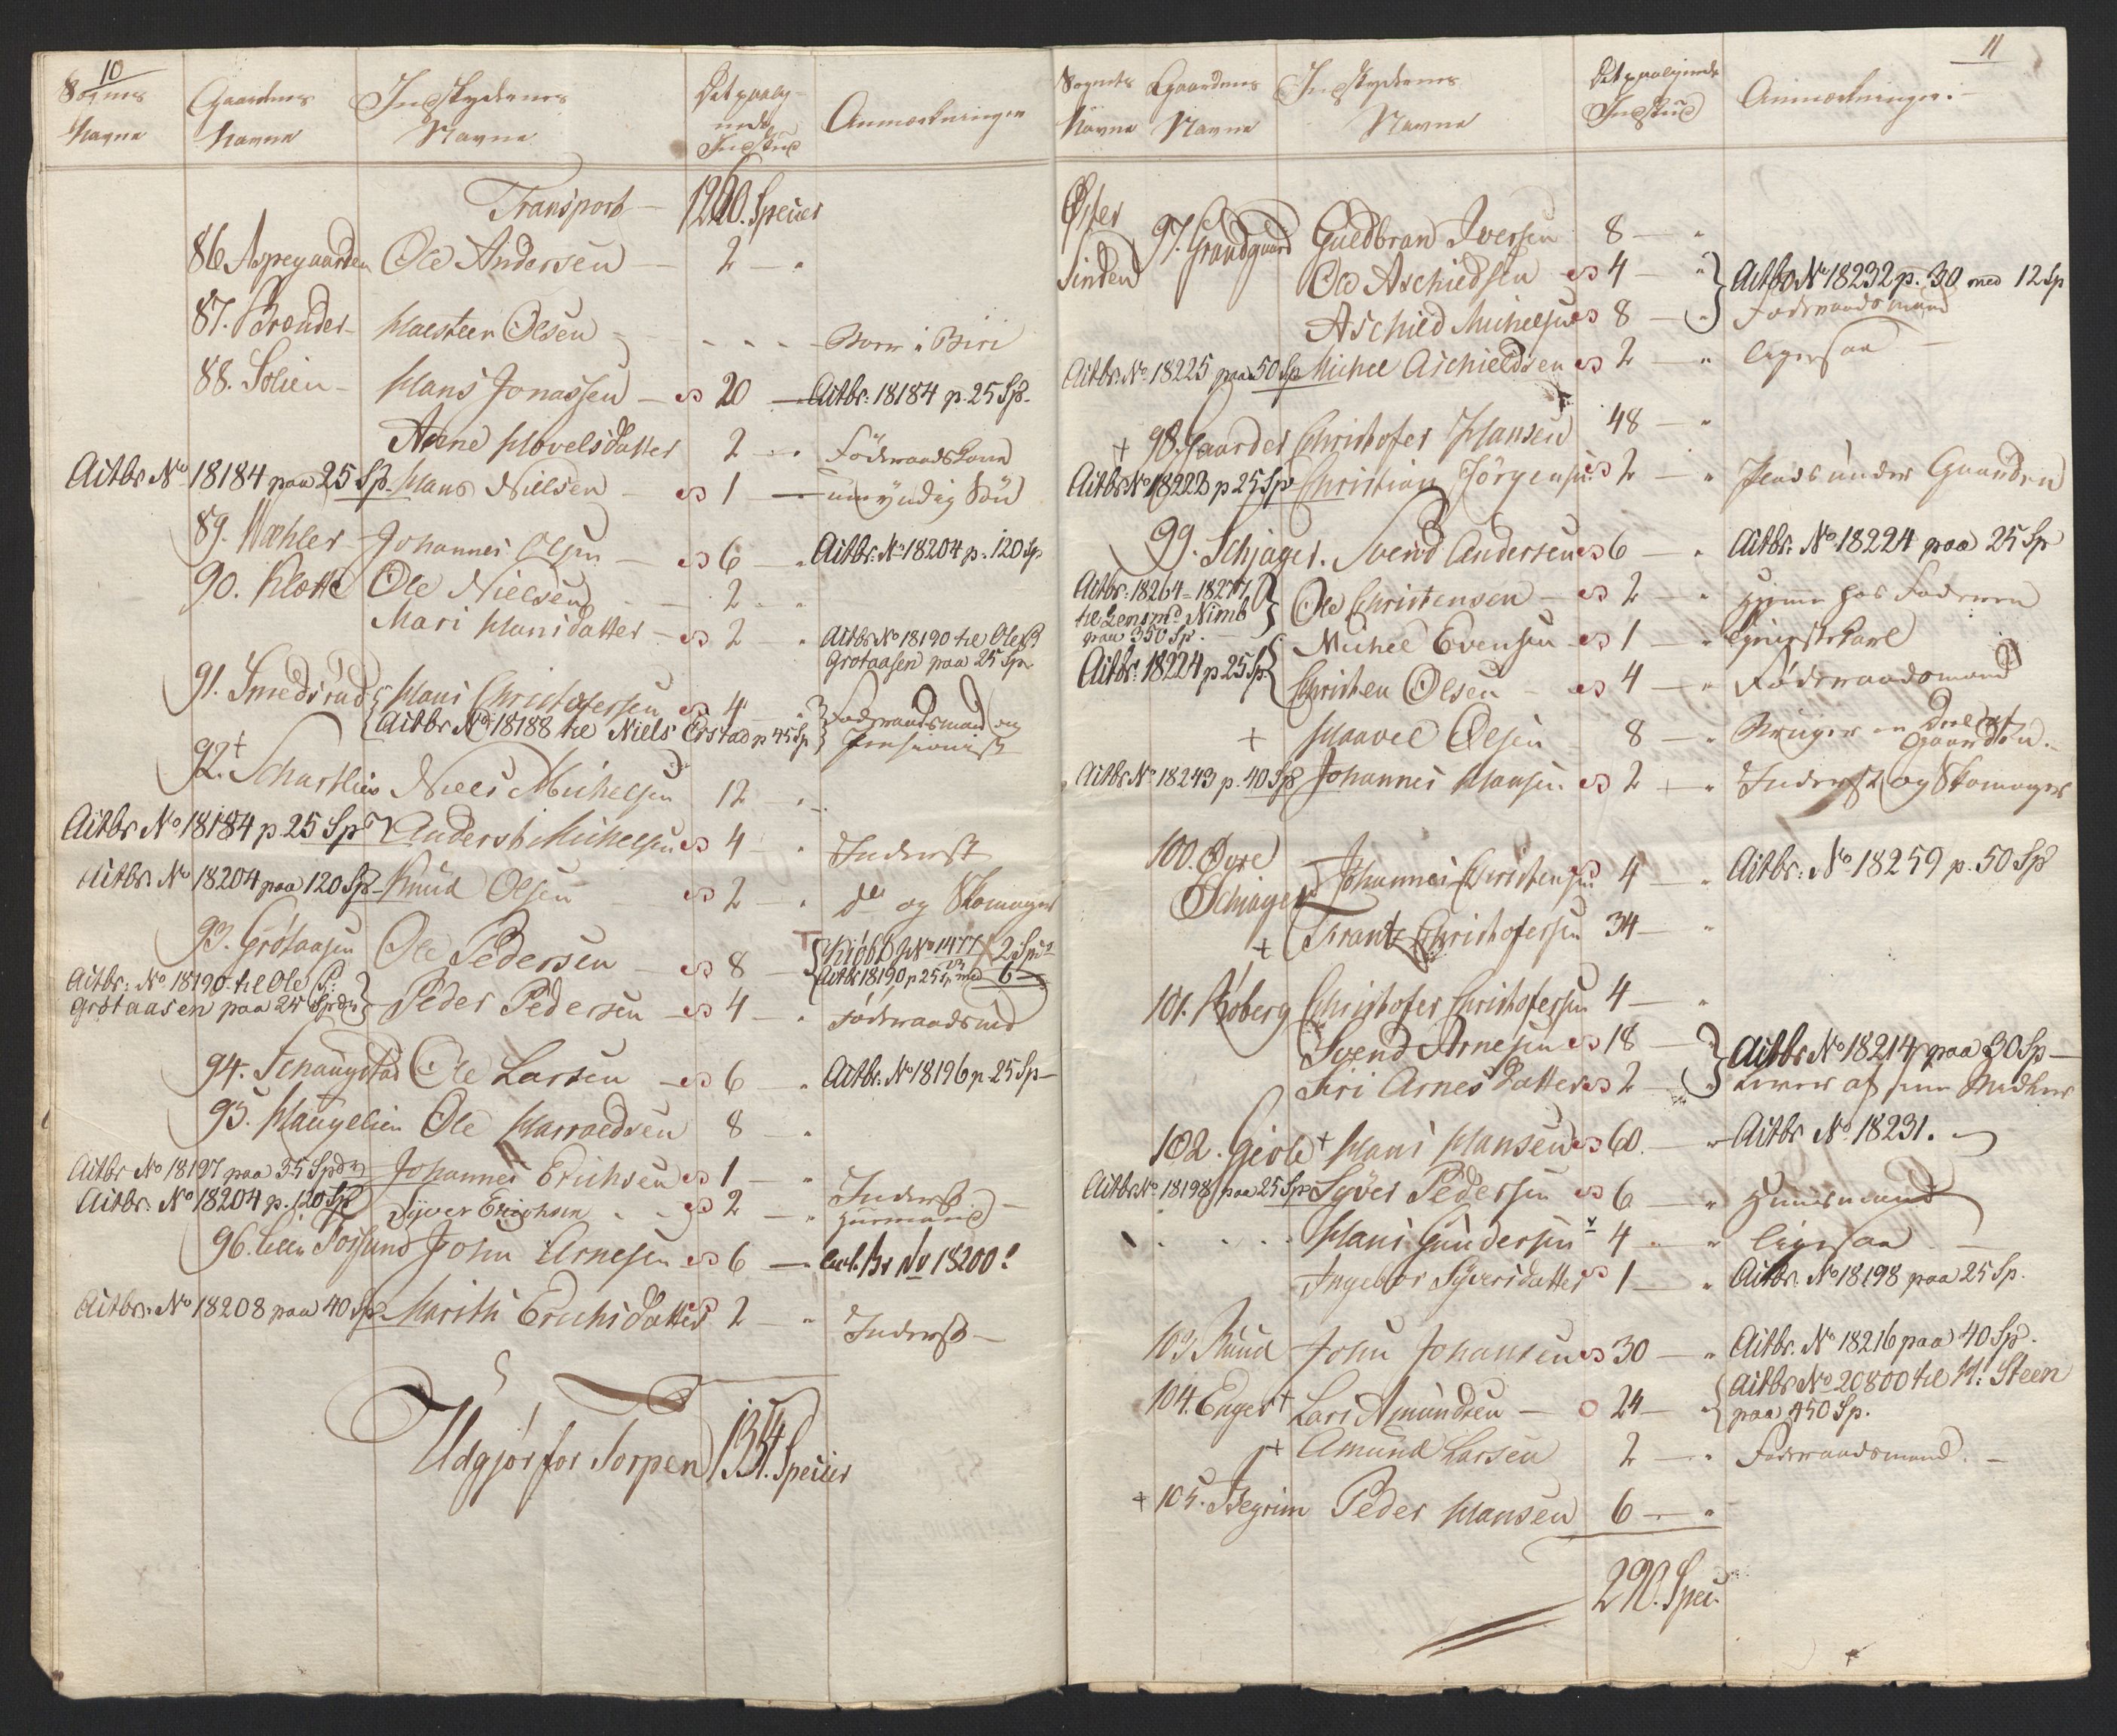 10
Sognets Navne
Gaardenes Navne
Indskydernes Navne
Det paalignede Indskud
Anmærkninger
Transport — 1260. Specier
86 Aspegaarden Ole Andersen — 2 — "
87. Brænder- Halsteen Olsen - - - - Boer i Biri
88. Solien - Hans Jonassen — 20 — Actbr: 18184 p. 25 Sp.
Anne Hovelsdatter 2 — " Föderaadskone
Actbr No 18184 paa 25 Sp. Hans Nielsen — 1 — umÿndig Sön
89. Wæhler - Johannes Olsen — 6 — " Actbr. No 18204 p. 120 Sp
90. Klotte Ole Nielsen — 2 - "
Mari Hansdatter — 2 " Actbr No 18190 til Ole P.
Grotaasen paa 25 Sp.
91. Smedsrud Hans Christofersen 4 " Föderaadsmand og
Actbr No 18188 til Niels Erstad p 45 Sp Pensionist
92. + Schartlien Niels Michelsen 12 — "
Actbr No 18184 p. 25 Sp Anders Michelsen 4 - " Inderst
Actbr. No 18204 paa 120 Sp - Knud Olsen — 2 - " do og Skomager
93. Grötaasen Ole Pedersen — 8 — Kiöbt No 1477 2 Spd
Actbr 18190 p 25 Sp med 6 —
Actbr: No 18190 til Ole P:
Grötaasen paa 25 Spd Peder Pedersen — 4 — "
94. Schaugstad Ole Larsen — 6 — " Actbr. No 18196 p. 25 Sp —
95. Haugelien Ole Harraldsen 8 — "
Actbr No 18197 paa 35 Spd Johannes Erichsen 1 — " Inderst
Actbr. No 18204 p. 120 Sp Syver Erichsen - - 2 — " Huusmand
96. Lien Torsund John Arnesen 6 — Act. Br No 18200.
Actbr. No 18208 paa 40 Sp. Marith Erichsdatter 2 — " Inderst —
Udgjør for Torpen 1354. Specier
11
Sognets Navne
Gaardenes Navne
Indskydernes Navne
Det paalignede Indskud
Anmærkninger. —
Öster
Sinden 97. Grandgaard Guldbran Iversen 8 — "
Ole Aschildsen 4 — " Actbr No 18232 p. 30 med 12 Sp
Aschild Michelsen 8 — " Föderaadsmand
Actbr. No 18225 paa 50 Sp Michel Aschieldsen 2 — " ligesaa —
+ 98. Gaarder Christofer Hansen 48 — "
Actbr No 18222 p 25 Sp Christian Jörgensen 2 — " Plads under Gaarden
99. Schjager. Svend Andersen 6 — " Actbr. No 18224 paa 25 Sp
Actbr. 18264 - 18277
til Lensmd Nimb
paa 350 Sp. — Ole Christensen — 2 — " Hjeme hos Faderen
Michel Evensen 1 — "
Actbr. 18224 p 25 Sp. Christen Olsen — 4 — " Föderaadsmand
+ Haavel Olsen 8 — " Bruger en Deel af
Gaarden. —
Actbr No 18243 p. 40 Sp Johannes Hansen 2 — " Inderst og Skomager
100. Övre
Schjager Johannes Christensen 4 — " Actbr. No 18259 p. 50 Sp
+ Frantz Christofersen 34 — "
101. Röberg Christofer Christofersen 4 — "
Svend Arnesen 18 — Actbr No 18214 paa 30 Sp —
Siri Arnesdatter 2 — Lever af sine Midler
102. Giöle + Hans Hansen 60. — " Actbr No 18231. —
Actbr No 18198 paa 25 Sp Syver Pedersen 6 — " Huusmand
- - - - Hans Gundersen 4 — " ligesaa —
Ingebor Syversdatter 1 — " Actbr. No 18198 paa 25 Sp.
103 Ruud John Johansen 30 — " Actbr. No 18216 paa 40 Sp.
104. Enger + Lars Amundsen — 24 — " Actbr No 20800 til H. Steen
paa 450 Sp.
+ Amund Larsen 2 — " Föderaadsmand. —
+ 105. Peder Hansen 6 — "
290. Speci.